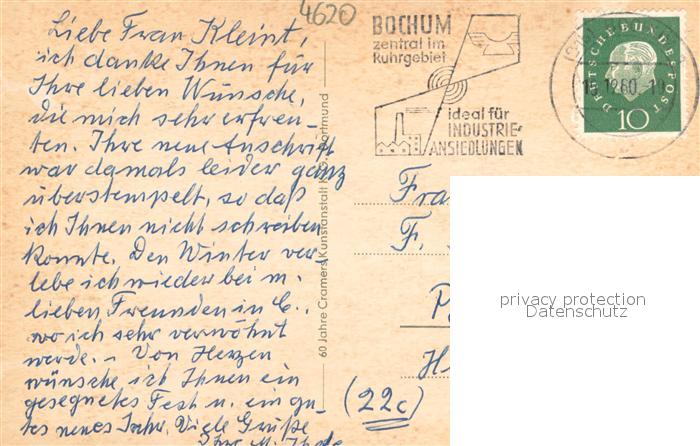 4620
Liebe Frau Kleint,
ich danke Ihnen für
Ihre lieben Wünsche,
die mich sehr erfreu-
ten. Ihre neue Anschrift
war damals leider ganz
überstempelt, so daß
ich Ihnen nicht schreiben
konnte. Den Winter ver-
lebe ich wieder bei m.
lieben Freunden in C.,
wo ich sehr verwöhnt
werde. - Von Herzen
wünsche ich Ihnen ein
gesegnetes Fest u. ein gu-
tes neues Jahr. Viele Grüße
Ihre M.
60 Jahre Cramers Kunstanstalt KG, Dortmund
BOCHUM
zentral im
Ruhrgebiet
ideal für
INDUSTRIE-
ANSIEDLUNGEN
DEUTSCHE BUNDESPOST
10
12.60
F.
(22c)
privacy protection
Datenschutz